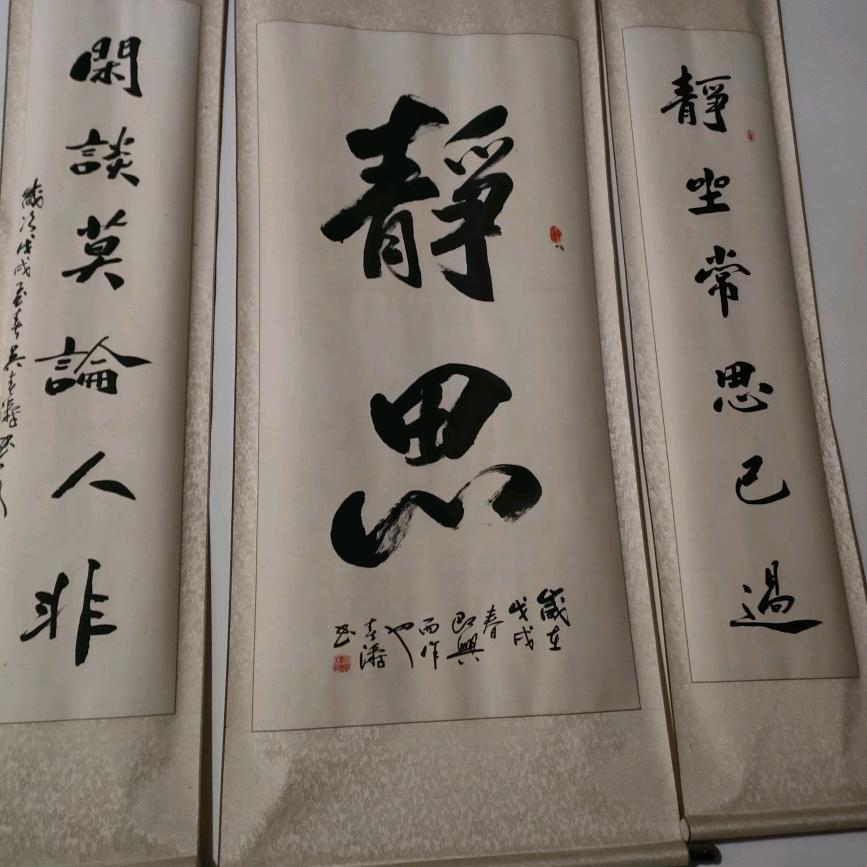 靜坐常思己過
靜思
歲在
戊戌
春
即興
而作
也
閑談莫論人非
歲次戊戌